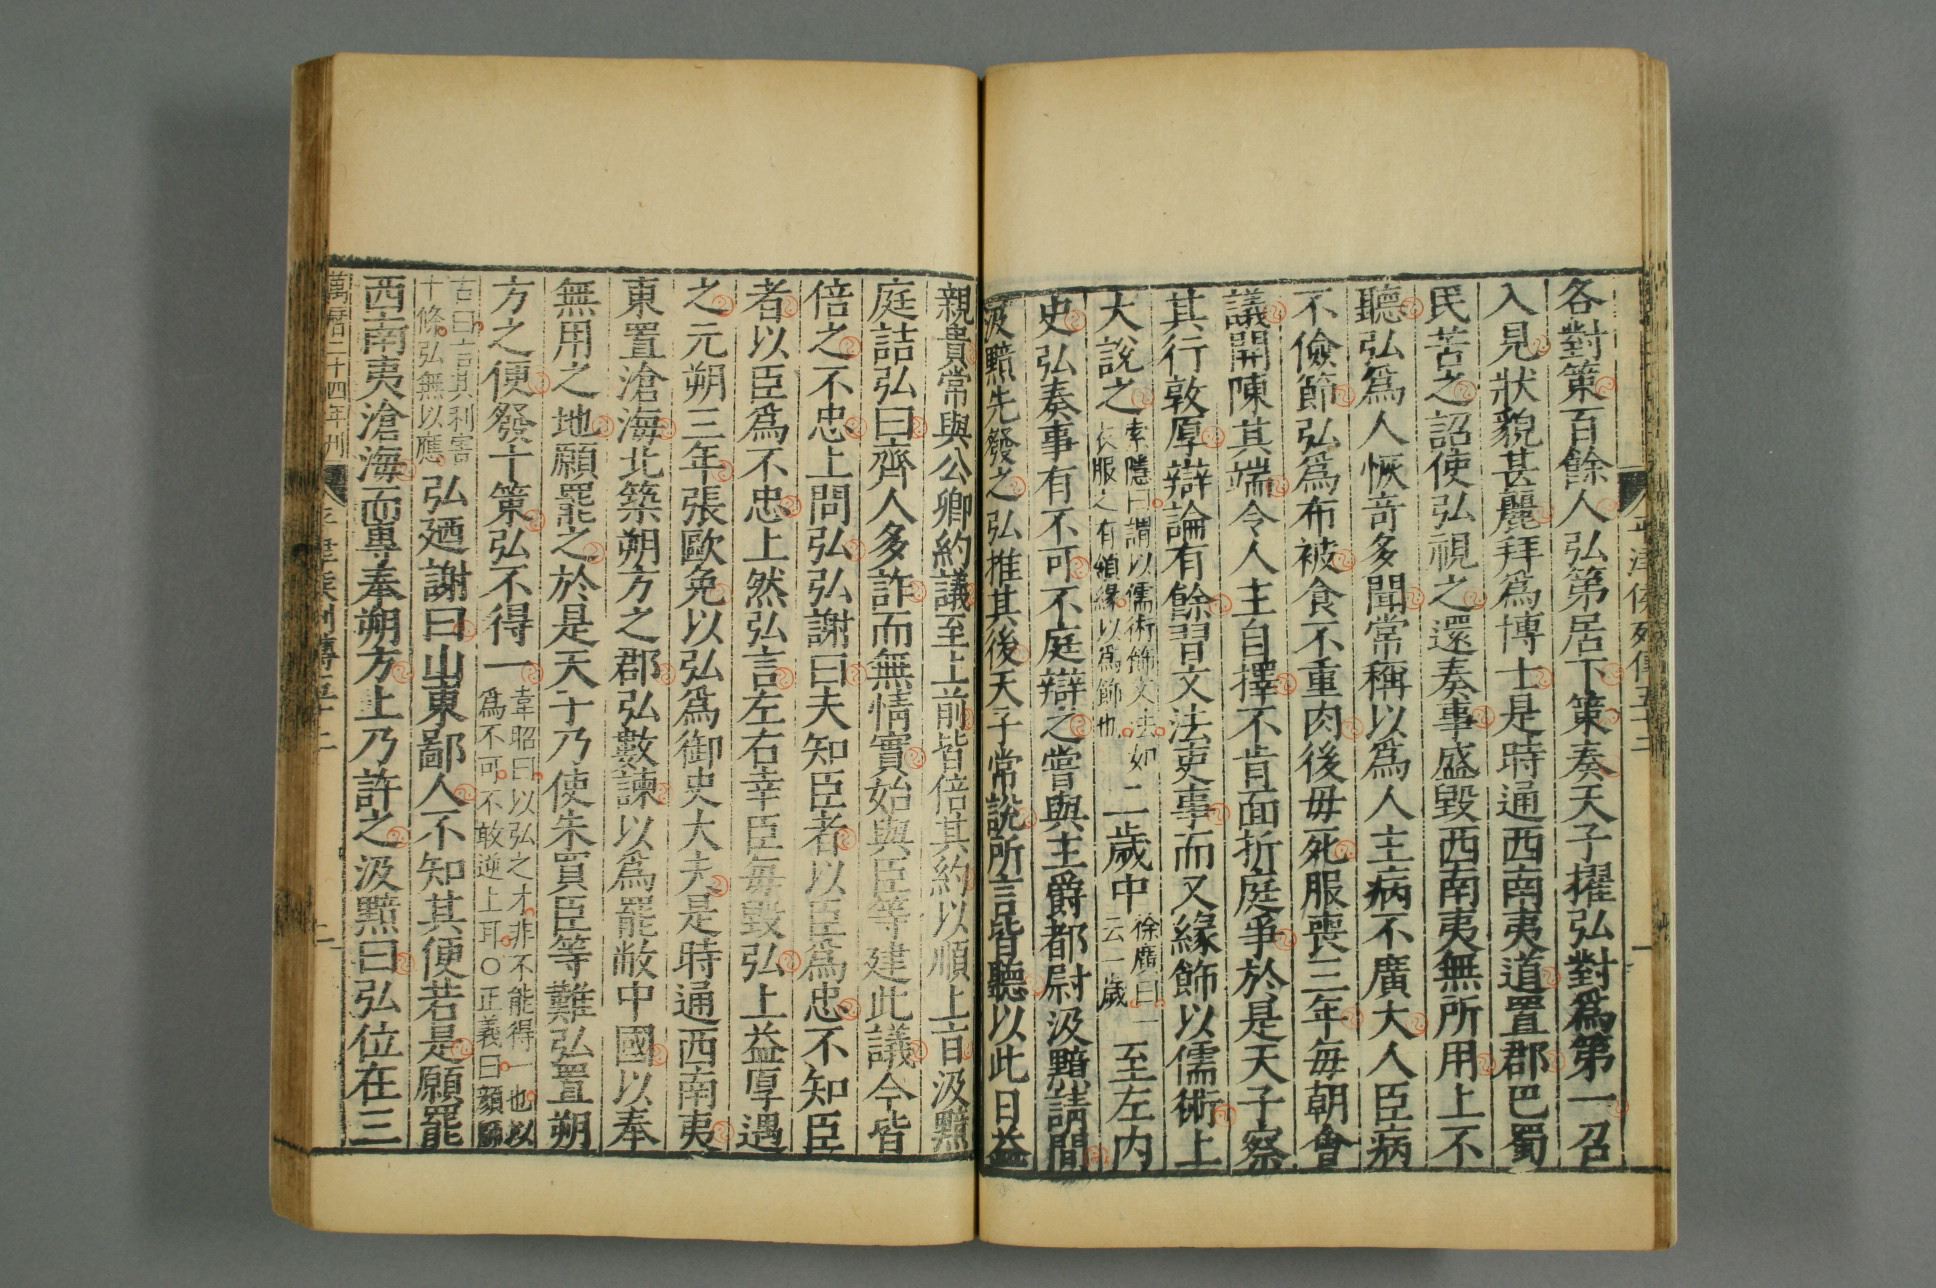 各對策百餘人弘第居下策奏天子擢弘對爲第一召
入見狀貌甚麗拜爲博士是時通西南夷道置郡巴蜀
民苦之詔使弘視之還奏事盛毀西南夷無所用上不
聽弘爲人恢奇多聞常稱以爲人主病不廣大人臣病
不儉節弘爲布被食不重肉後母死服喪三年每朝會
議開陳其端令人主自擇不肯面折庭爭於是天子察
其行敦厚辯論有餘習文法吏事而又緣飾以儒術上
大說之索隱曰謂以儒術飾文法如衣服之有領緣以爲飾也二歲中徐廣曰一云一歲至左内
史弘奏事有不可不庭辯之嘗與主爵都尉汲黯請間
汲黯先發之弘推其後天子常說所言皆聽以此日益
親貴常與公卿約議至上前皆倍其約以順上旨汲黯
庭詰弘曰齊人多詐而無情實始與臣等建此議今皆
倍之不忠上問弘弘謝曰夫知臣者以臣爲忠不知臣
者以臣爲不忠上然弘言左右幸臣每毀弘上益厚遇
之元朔三年張歐免以弘爲御史大夫是時通西南夷
東置滄海北築朔方之郡弘數諫以爲罷敝中國以奉
無用之地願罷之於是天子乃使朱買臣等難弘置朔
方之便發十策弘不得一韋昭曰以弘之才非不能得一也以爲不可不敢逆上耳○正義曰顔師
古曰言其利害十條弘無以應弘廼謝曰山東鄙人不知其便若是願罷
西南夷滄海而專奉朔方上乃許之汲黯曰弘位在三
萬曆二十四年刊 平津侯列傳五十二 二